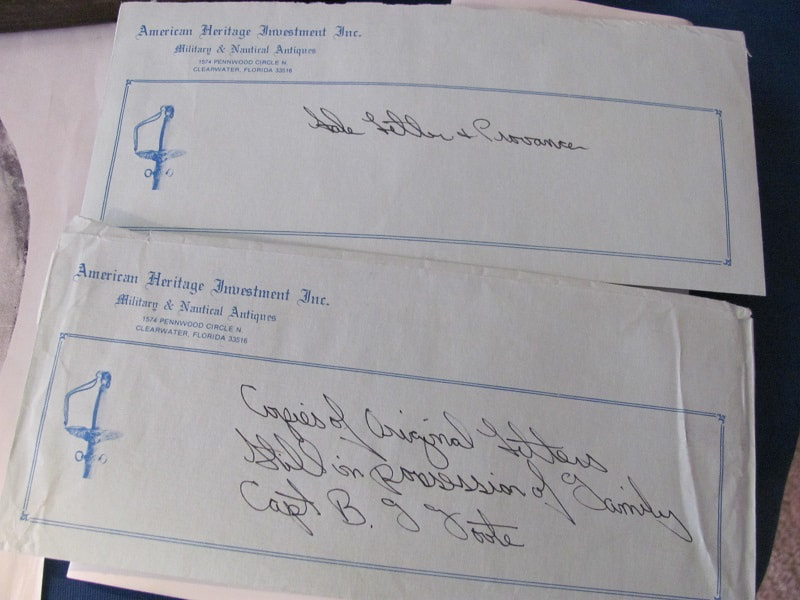 American Heritage Investment Inc.
Military & Nautical Antiques
1574 PENNWOOD CIRCLE N.
CLEARWATER, FLORIDA 33516
Sale Letter & Provance
American Heritage Investment Inc.
Military & Nautical Antiques
1574 PENNWOOD CIRCLE N.
CLEARWATER, FLORIDA 33516
Copies of Original Letters
Still in Possession of Family
Capt B. G Foote